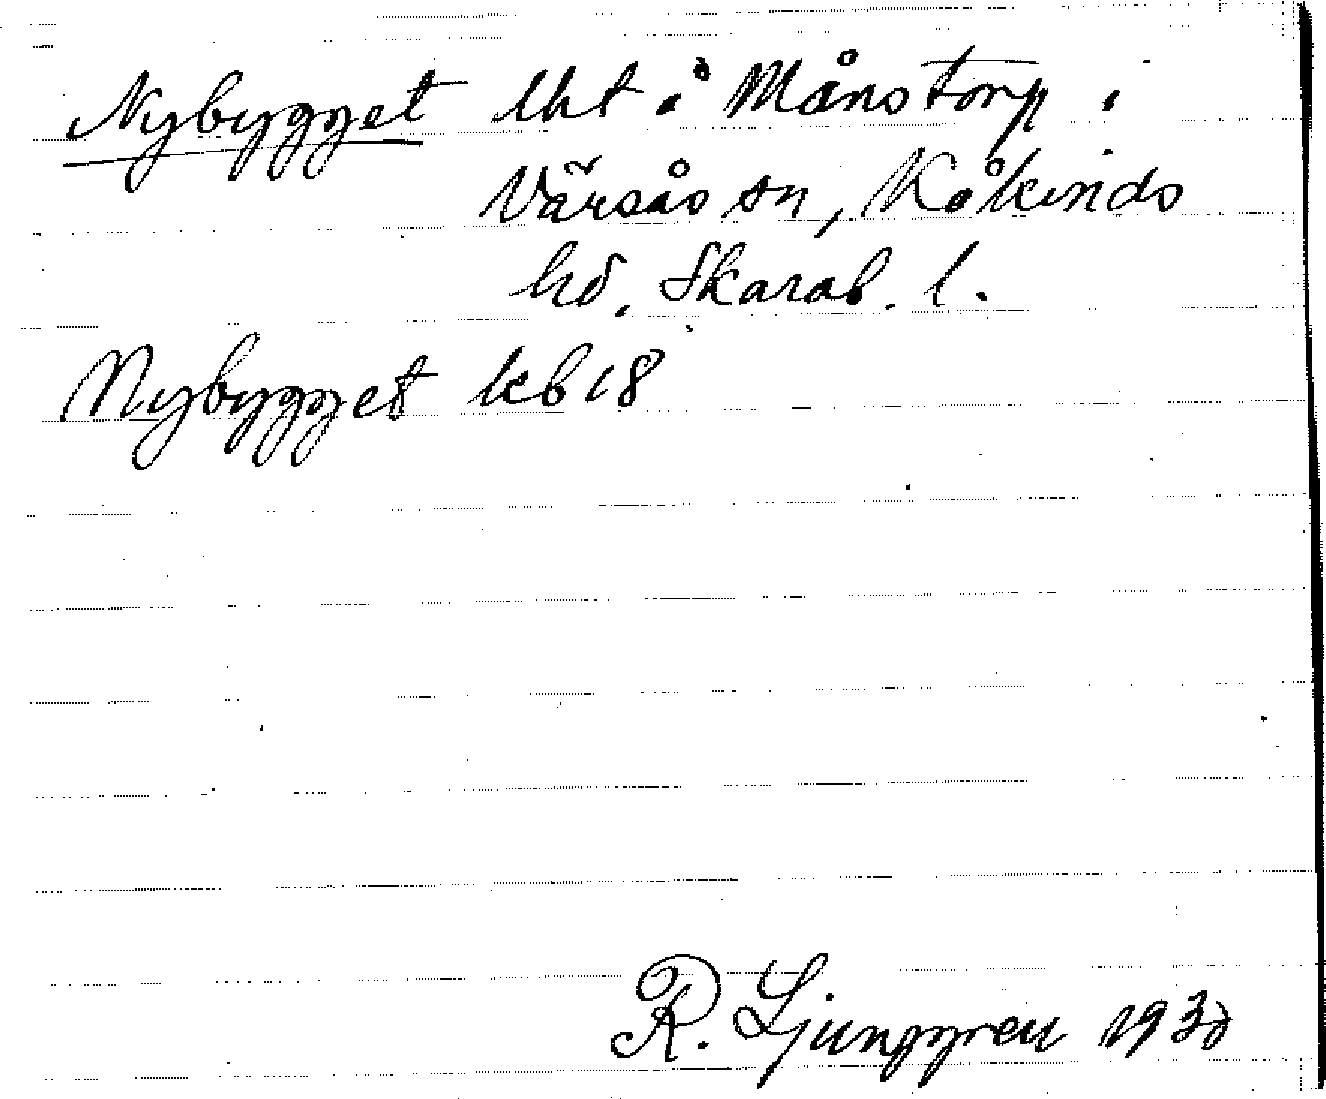 Nybygget lht å Månstorp i
Värsås sn, Kåkinds
hd. Skarab. l.
Nybygget kb 18
R. Ljunggren